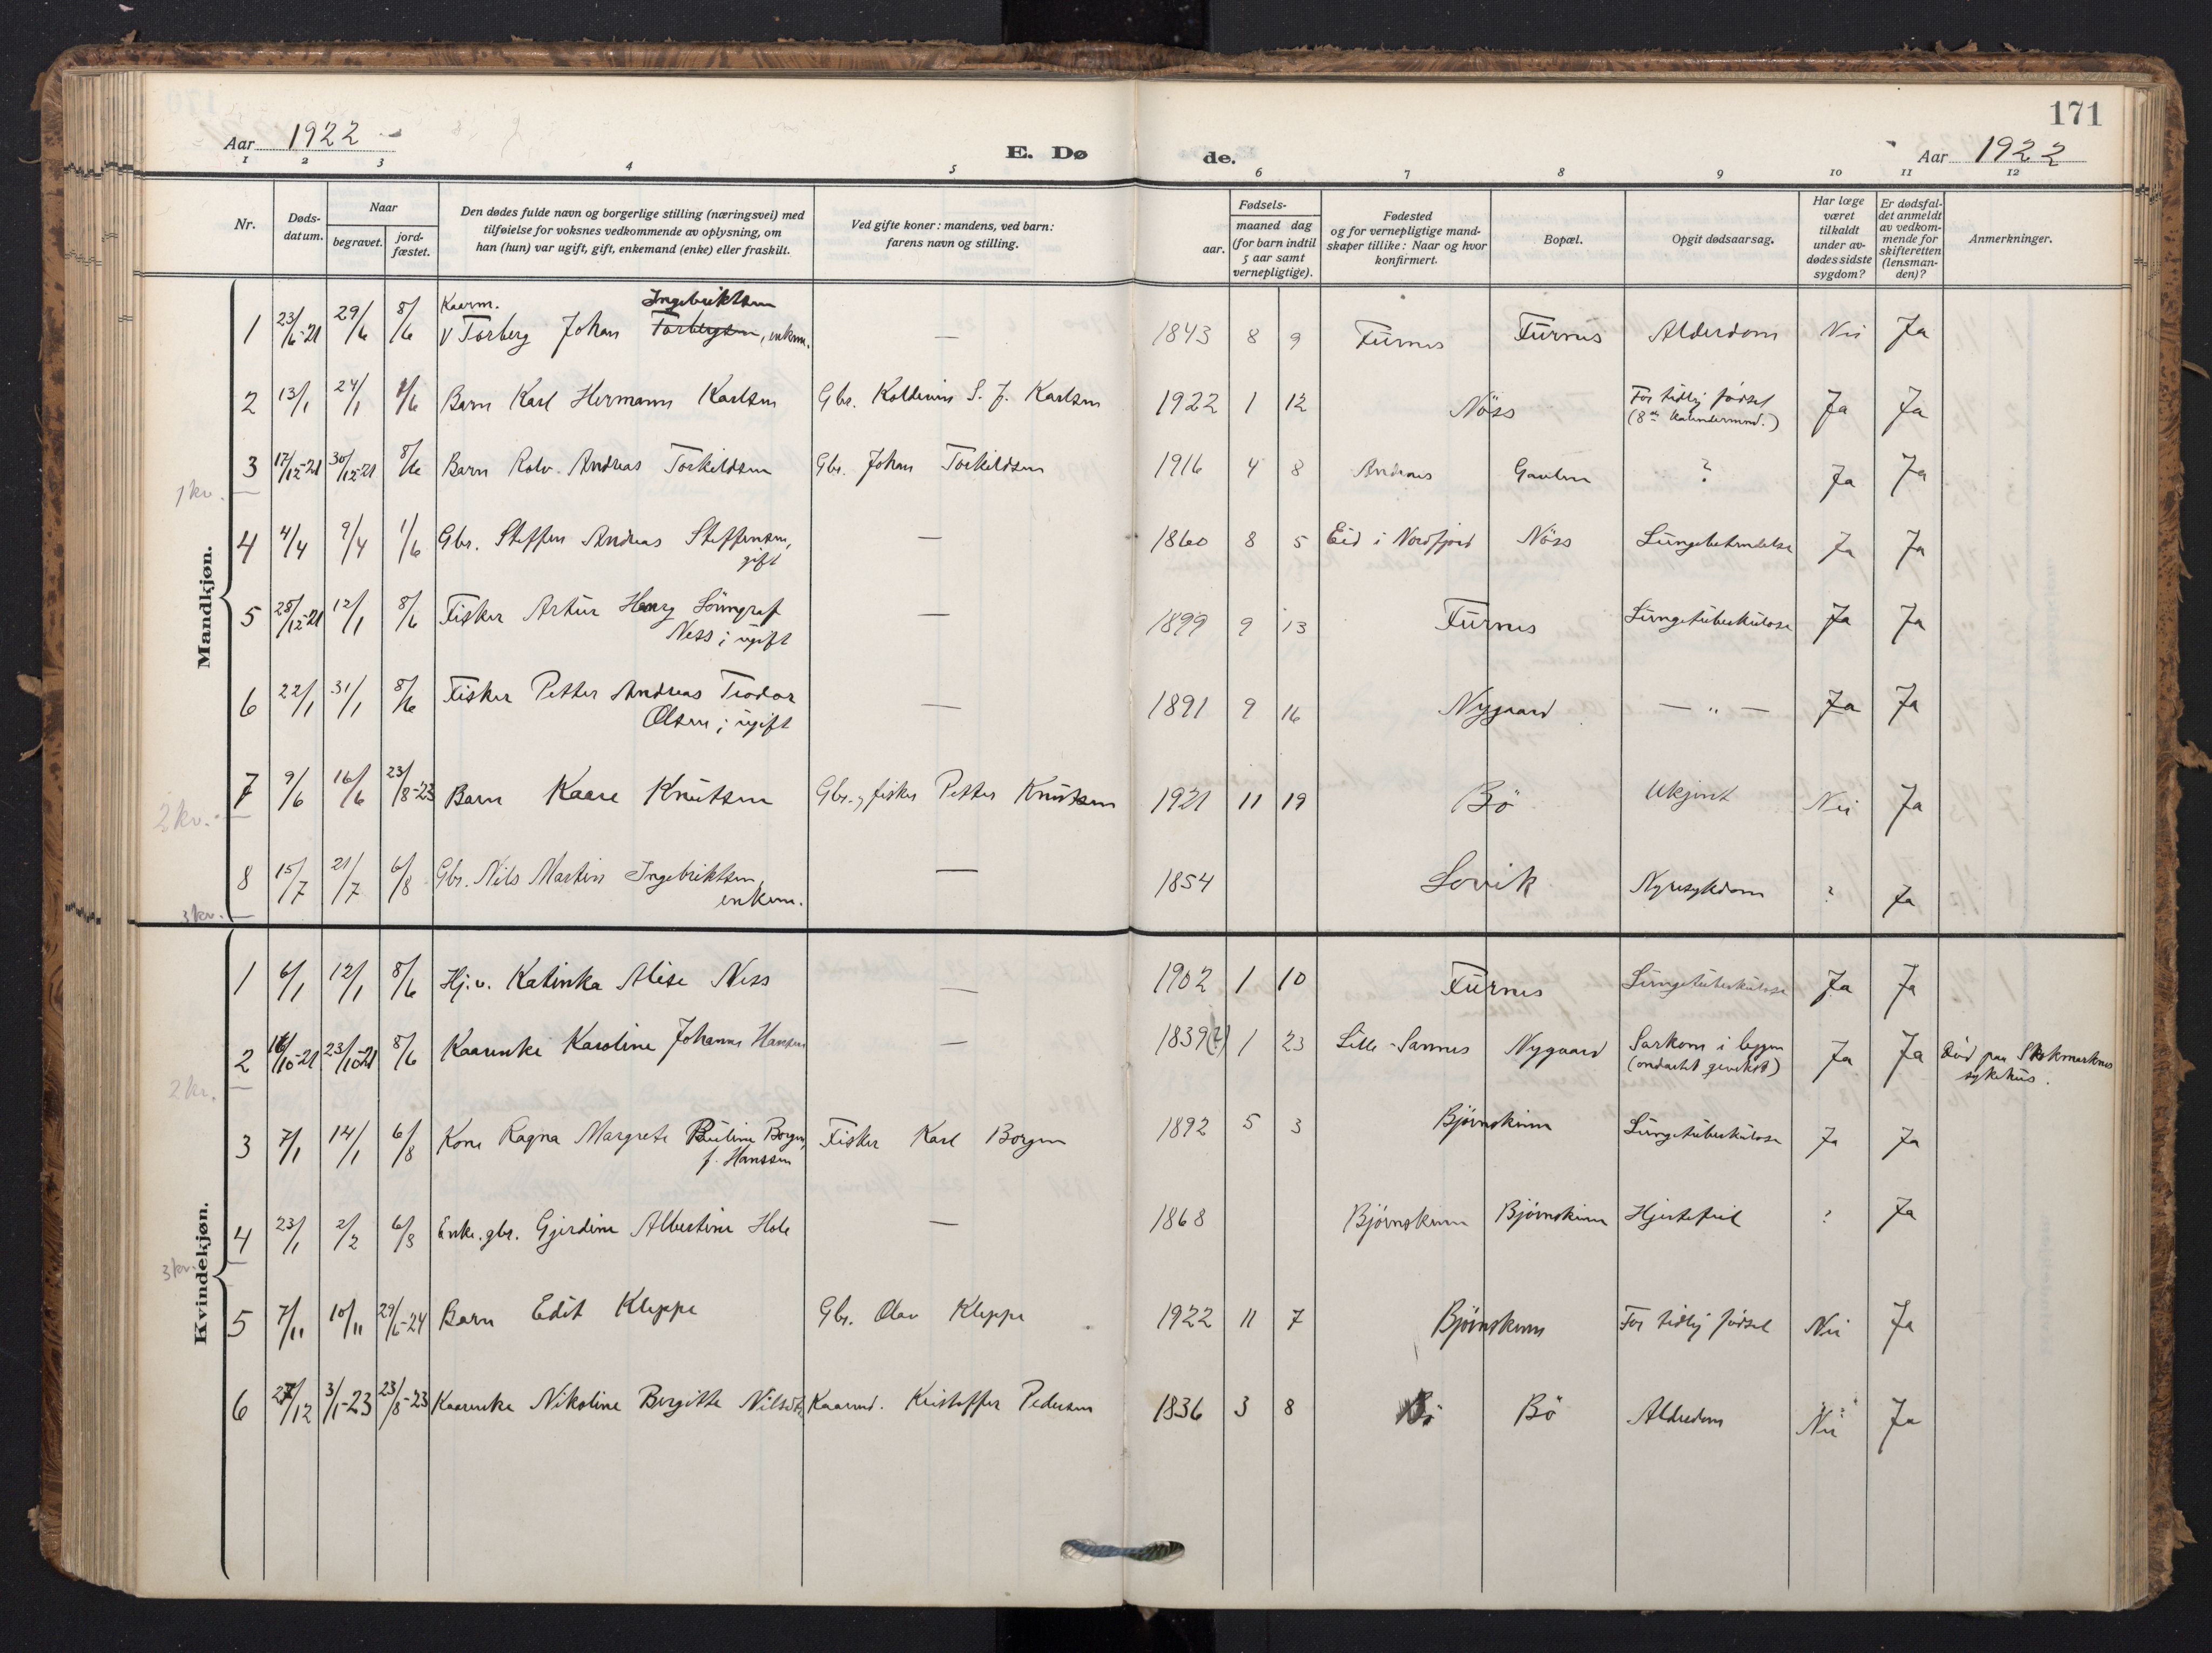 171
Aar 1922
E. Dø
de.
Aar 1922
1 2 3 4 5 6 7 8 9 10 11 12
Nr.
Døds-
datum.
Naar
begravet.
jord-
fæstet.
Den dødes fulde navn og borgerlige stilling (næringsvei) med
tilføielse for voksnes vedkommende av oplysning, om
han (hun) var ugift, gift, enkemand (enke) eller fraskilt.
Ved gifte koner: mandens, ved barn:
farens navn og stilling.
Fødsels-
aar.
maaned dag
(for barn indtil
5 aar samt
vernepligtige).
Fødested
og for vernepligtige mand-
skaper tillike: Naar og hvor
konfirmert.
Bopæl.
Opgit dødsaarsag.
Har læge
været
tilkaldt
under av-
dødes sidste
sygdom?
Er dødsfal-
det anmeldt
av vedkom-
mende for
skifteretten
(lensman-
den)?
Anmerkninger.
Mandkjøn.
Kaarm. Ingebriktsen
1 23/6-21 29/6 8/6 Torberg Johan Torbergsen, enkem. — 1843 8 9 Furnes Furnes Alderdom Nei Ja
2 13/1 24/1 8/6 Barn Karl Hermann Karlsen Gbr. Koldevin S. J. Karlsen 1922 1 12 Nöss For tidlig födsel Ja Ja
(8de kalendermnd.)
3 17/12-21 30/12-21 8/6 Barn Rolv Andreas Torkildsen Gbr. Johan Torkildsen 1916 4 8 Andenes Gavlen ? Ja Ja
1 kv.
4 4/4 9/4 1/6 Gbr. Steffen Andreas Steffensen, — 1860 8 5 Eid i Nordfjord Nöss Lungebetendelse Ja Ja
gift
5 28/12-21 12/1 8/6 Fisker Artur Henry Lönngraf — 1899 9 13 Furnes Lungetuberkulose Ja Ja
Ness; ugift
6 22/1 31/1 8/6 Fisker Petter Andreas Teodor — 1891 9 16 Nygaard — „ — Ja Ja
Olsen; ugift
7 9/6 16/6 23/8-23 Barn Kaare Knutsen Gbr., fisker Petter Knutsen 1921 11 19 Bö Ukjent Nei Ja
2 kv.
8 15/7 21/7 6/8 Gbr. Nils Martin Ingebriktsen, — 1854 Lovik Nyresykdom ? Ja
enkem.
3 kv.
Kvindekjøn.
1 6/1 12/1 8/6 Hj.v. Katinka Alise Ness — 1902 1 10 Furnes Lungetuberkulose Ja Ja
2 16/10-21 23/10-21 8/6 Kaarenke Karoline Johanna Hansen — 1839(?) 1 23 Lille-Sannes Nygaard Sarkom i leggen Ja Ja Död paa Stokmarknes
(ondartet gevekst) sykehus.
2 kv.
3 7/1 14/1 6/8 Kone Ragna Margrete Pauline Borgen, Fisker Karl Borgen 1892 5 3 Björnskinn Lungetuberkulose Ja Ja
f. Hanssen
4 23/1 2/2 6/8 Enke, gbr. Gjerdine Albertine Hole — 1868 Björnskinn Björnskinn Hjertefeil ? Ja
3 kv.
5 7/11 10/11 29/6-24 Barn Edit Kleppe Gbr. Olav Kleppe 1922 11 7 Björnskinn For tidlig födsel Nei Ja
6 27/12 3/1-23 23/8-23 Kaarenke Nikoline Bergitte Nilsdtr. Kaarmd. Kristoffer Pedersen 1836 3 8 Bö Bö Aldredom Nei Ja